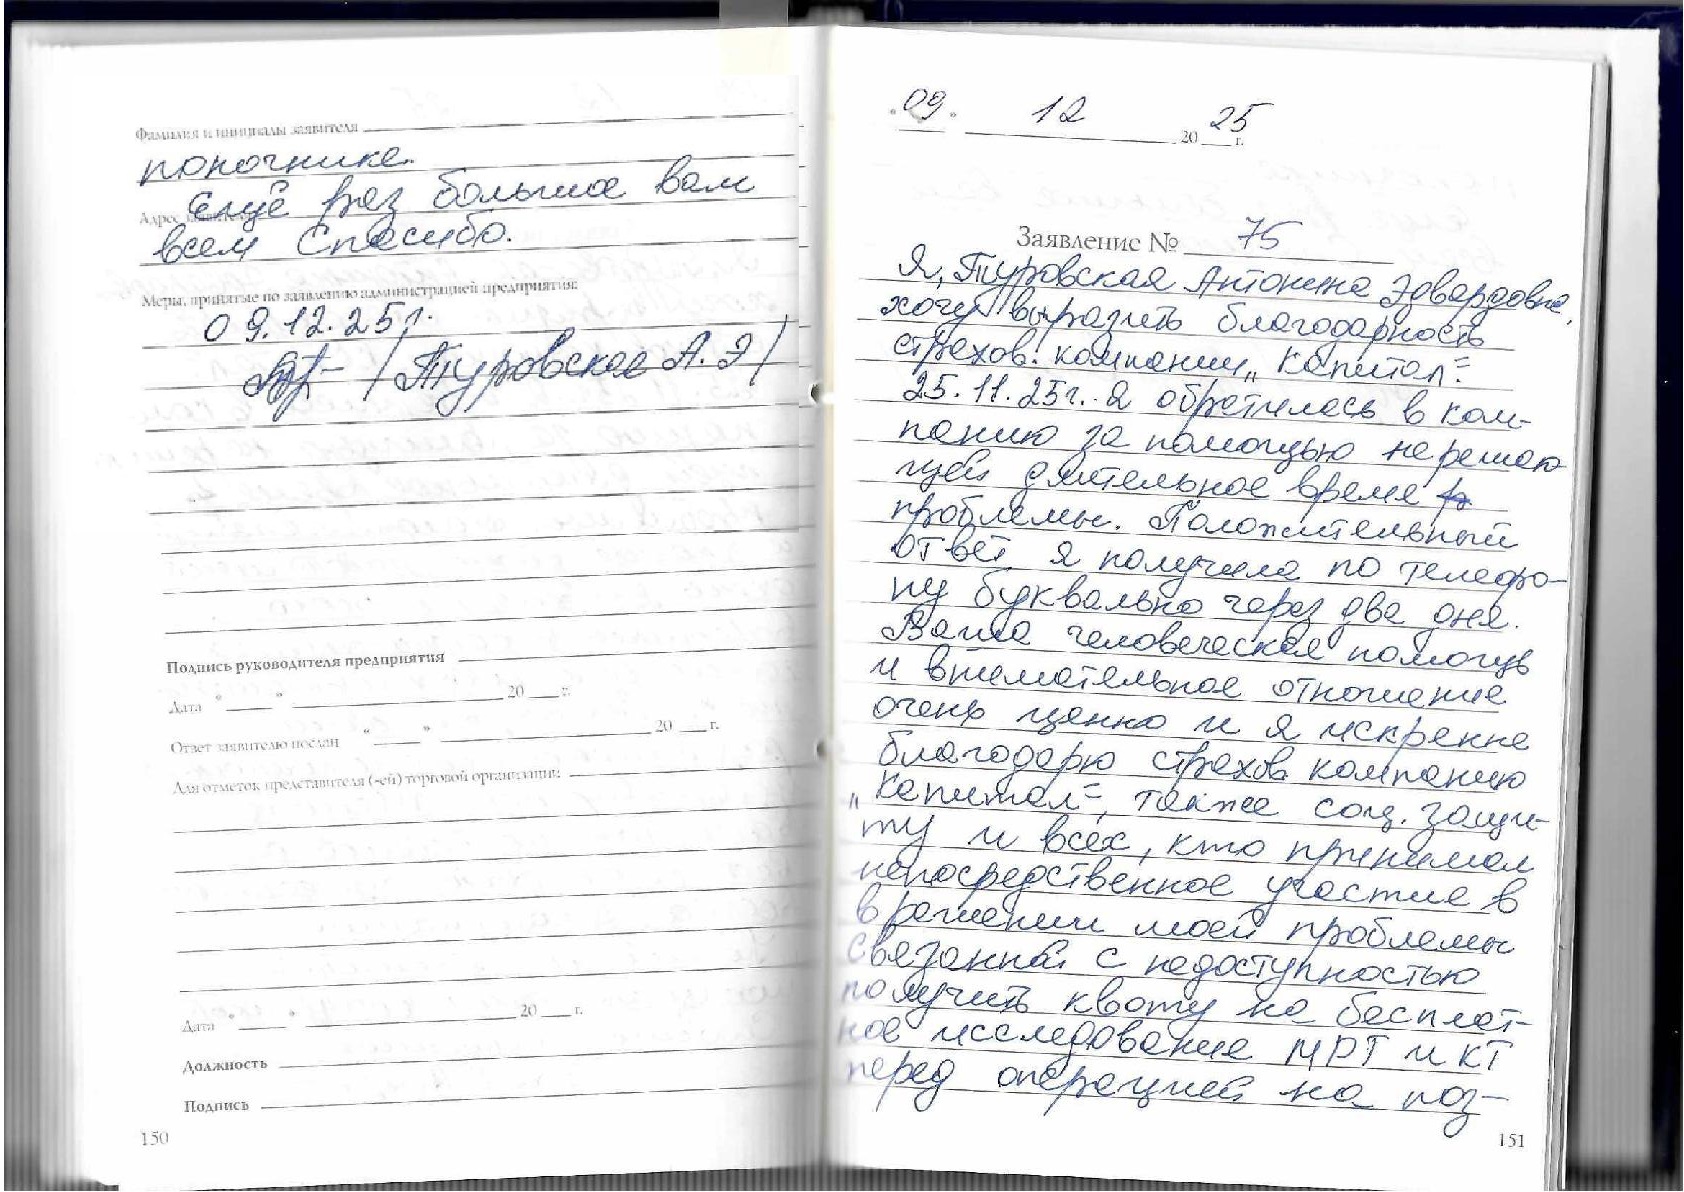 Фамилия и инициалы заявителя
поночнике.
Ещё раз большое вам
Адрес заявителя
всем Спасибо.
Меры, принятые по заявлению администрацией предприятия:
09.12.25г.
/Туровская А.Э/
Подпись руководителя предприятия
Дата " " 20 г.
Ответ заявителю послан " " 20 г.
Для отметок представителя (-ей) торговой организации:
Дата " " 20 г.
Должность
Подпись
150
"09" 12 2025 г.
Заявление № 75
Я, Туровская Антонина Эдвардовна,
хочу выразить благодарность
страхов. компании „Капитал"
25.11.25г. я обратилась в ком-
панию за помощью нерешаю
щей длительное время
проблемы. Положительный
ответ я получила по телефо-
ну буквально через два дня.
Ваша человеческая помощь
и внимательное отношение
очень ценно и я искренне
благодарю страхов. компанию
„Капитал", также соц. защи-
ту и всех, кто принимал
непосредственное участие в
в решении моей проблемы
связанной с недоступностью
получить квоту на бесплат-
ное исследование МРТ и КТ
перед операцией на поз-
151